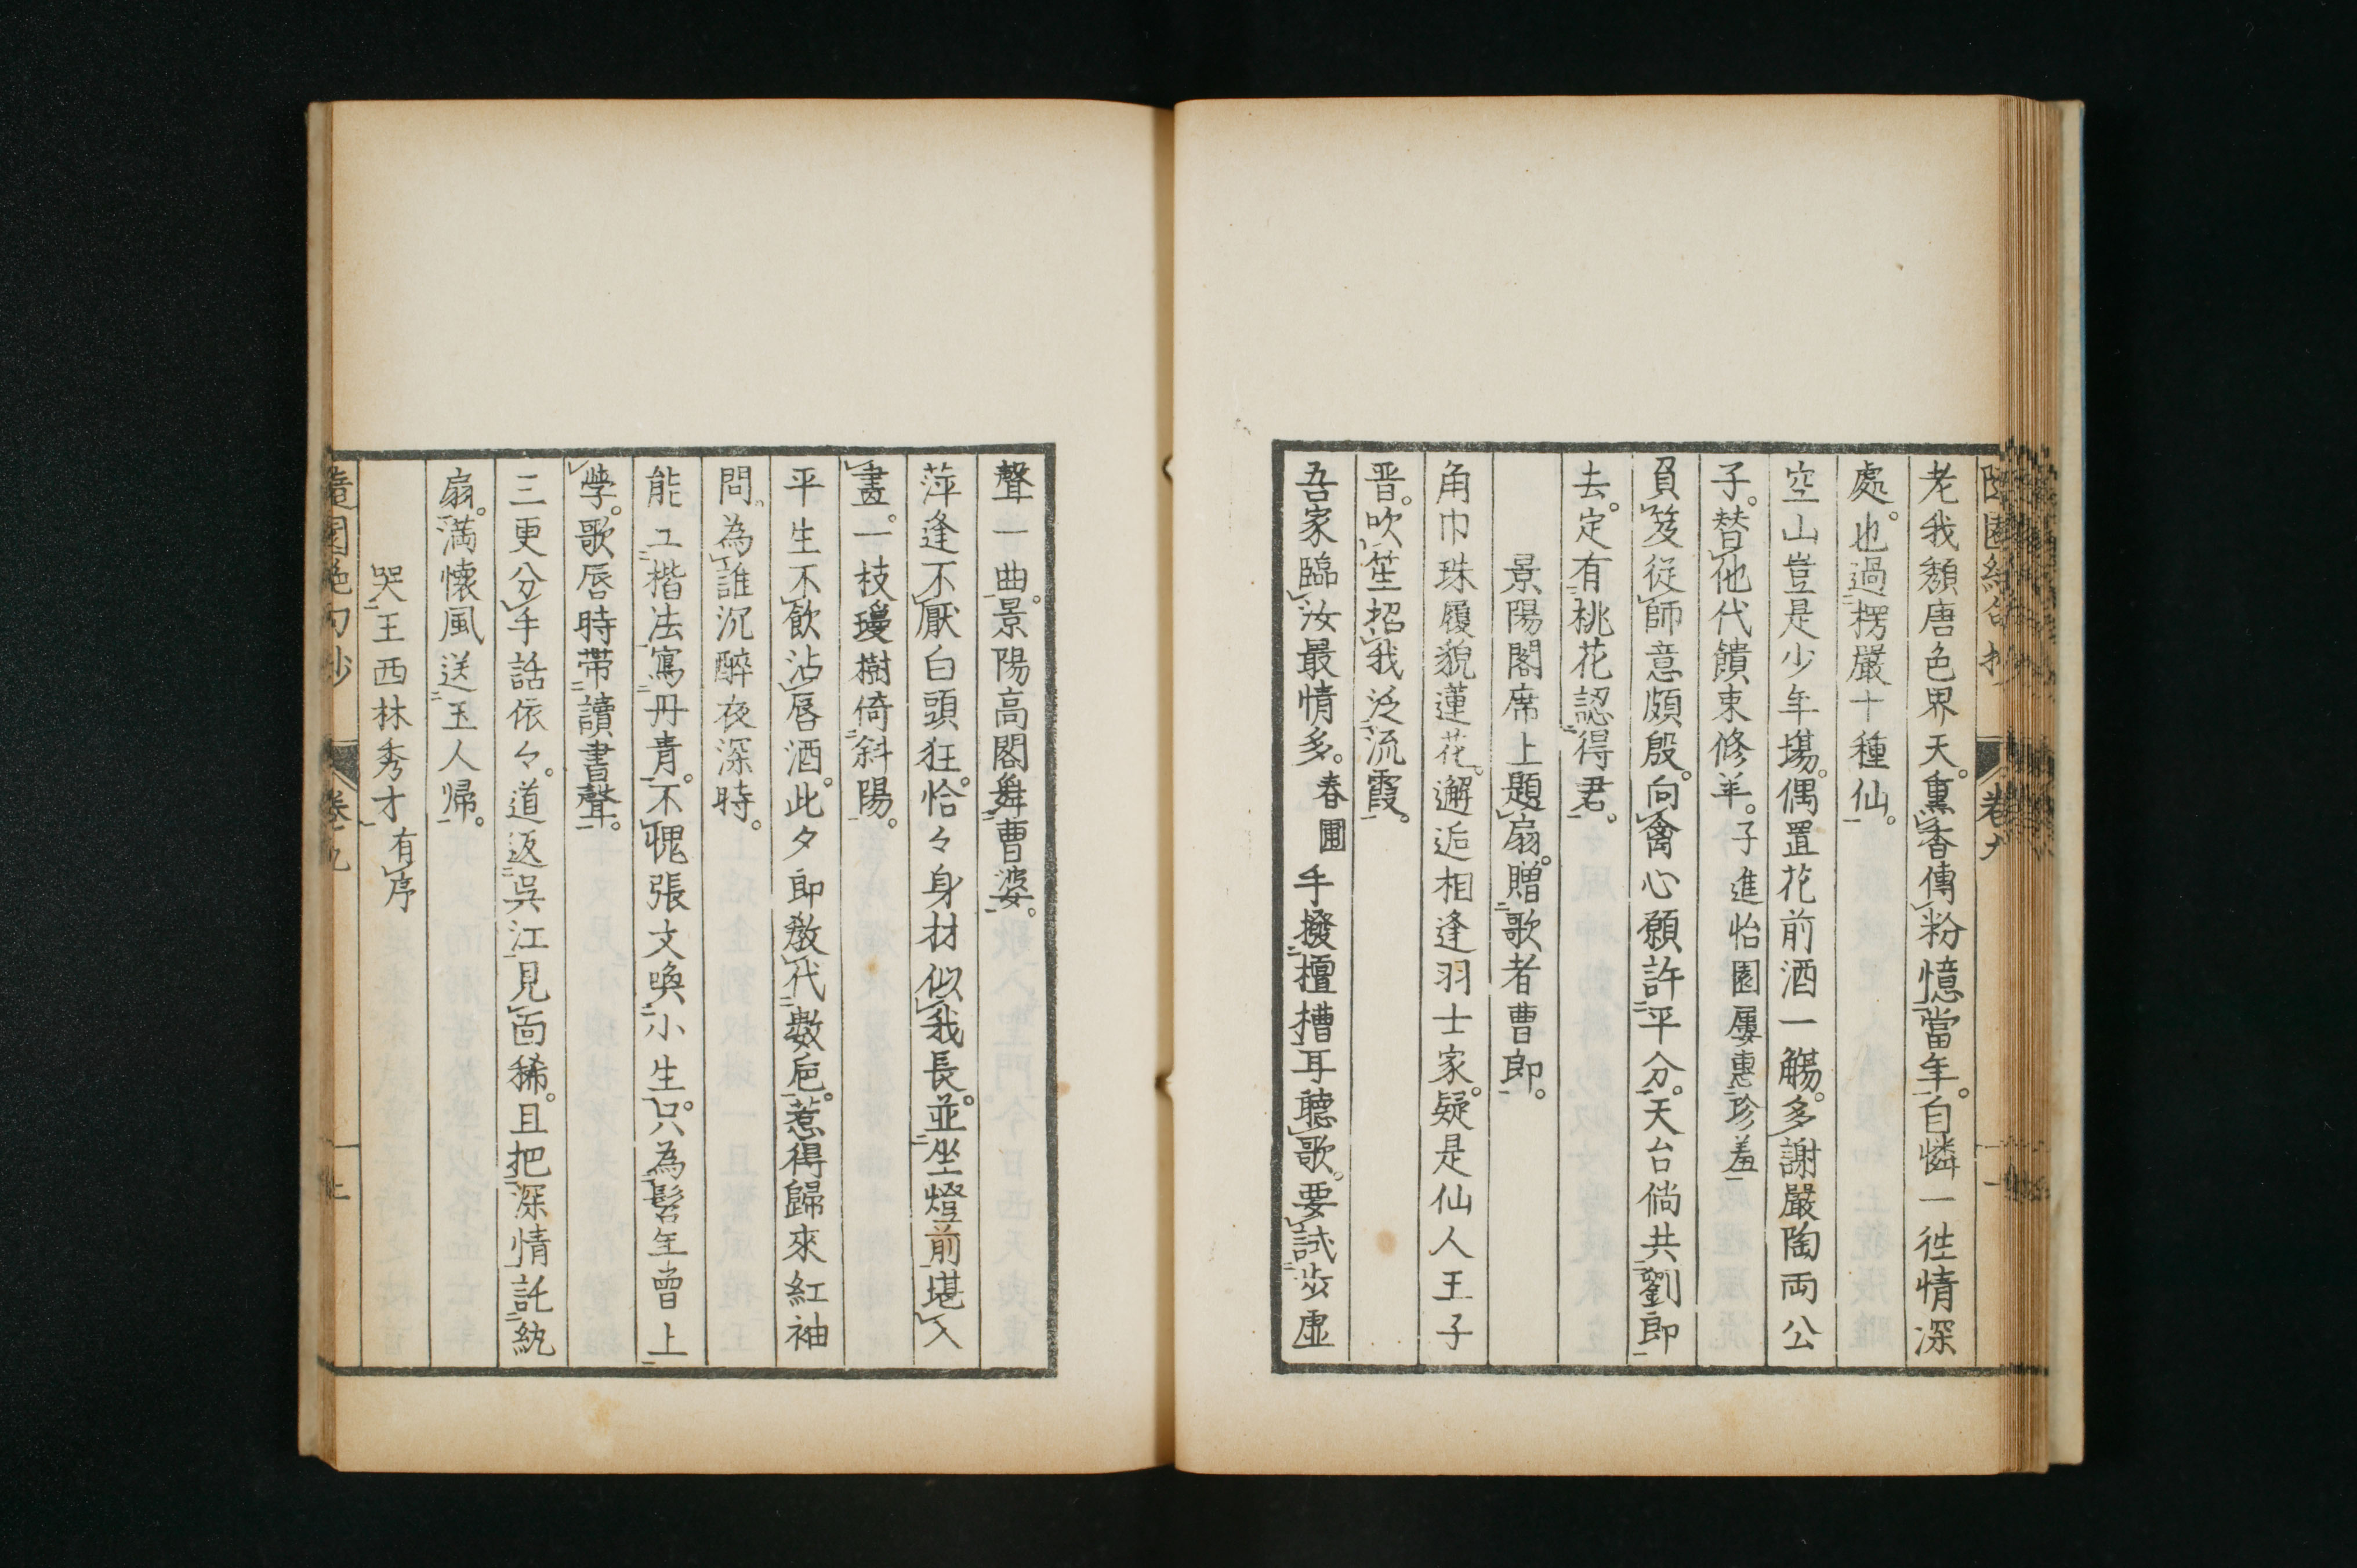 老我頽唐色界天。熏香傳粉憶當年。自憐一徃情深
處。也過楞嚴十種仙。
空山豈是少年塲。偶置花前酒一觴。多謝嚴陶両公
子。替他代饋束修羊。子進怡園屢惠珍羞
負笈従師意頗殷。向禽心願許平分。天台倘共劉郎
去。定有桃花認得君。
景陽閣席上題扇。贈歌者曹郎。
角巾珠履貌蓮花。邂逅相逢羽士家。疑是仙人王子
晋。吹笙招我泛流霞。
吾家臨汝最情多。春圃手撥檀槽耳聽歌。要試歩虚
聲一曲。景陽高閣舞曹婆。
萍逢不厭白頭狂。恰々身材似我長。並坐燈前堪入
畫。一枝瓊樹倚斜陽。
平生不飲沾唇酒。此夕郎教代數巵。惹得歸來紅袖
問。為誰沉醉夜深時。
能工楷法寫丹青。不愧張文喚小生。只為髫年曾上
學。歌唇時帶讀書聲。
三更分手話依々。道返呉江見面稀。且把深情託紈
扇。満懐風送玉人帰。
哭王西林秀才有序
隨園絶句抄
卷九